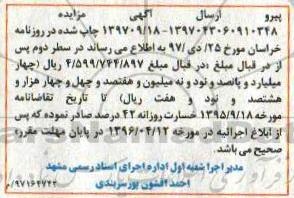 پیرو ارسال آگهی مزایده
۱۳۹۷۰۴۳۰۶۰۹۱۰۳۴۸-۱۳۹۷/۰۹/۱۸ چاپ شده در روزنامه
خراسان مورخ ۲۵/ دی /۹۷ به اطلاع می رساند در سطر دوم پس
از در قبال مبلغ «در قبال مبلغ ۴/۵۹۹/۷۴۴/۸۹۷ ریال (چهار
میلیارد و پانصد و نود و نه میلیون و هفتصد و چهل و چهار هزار و
هشتصد و نود و هفت ریال) تا تاریخ تقاضانامه
مورخه ۱۳۹۵/۹/۱۸ خسارت روزانه ۴۲ درصد صادر نموده که پس
از ابلاغ اجرائیه در مورخه ۱۳۹۶/۰۴/۱۲ در پایان مهلت مقرر»
صحیح می باشد.
مدیر اجرا شعبه اول اداره اجرای اسناد رسمی مشهد
احمد افشون پورسربندی
۹۷۱۶۴۷۲۲/